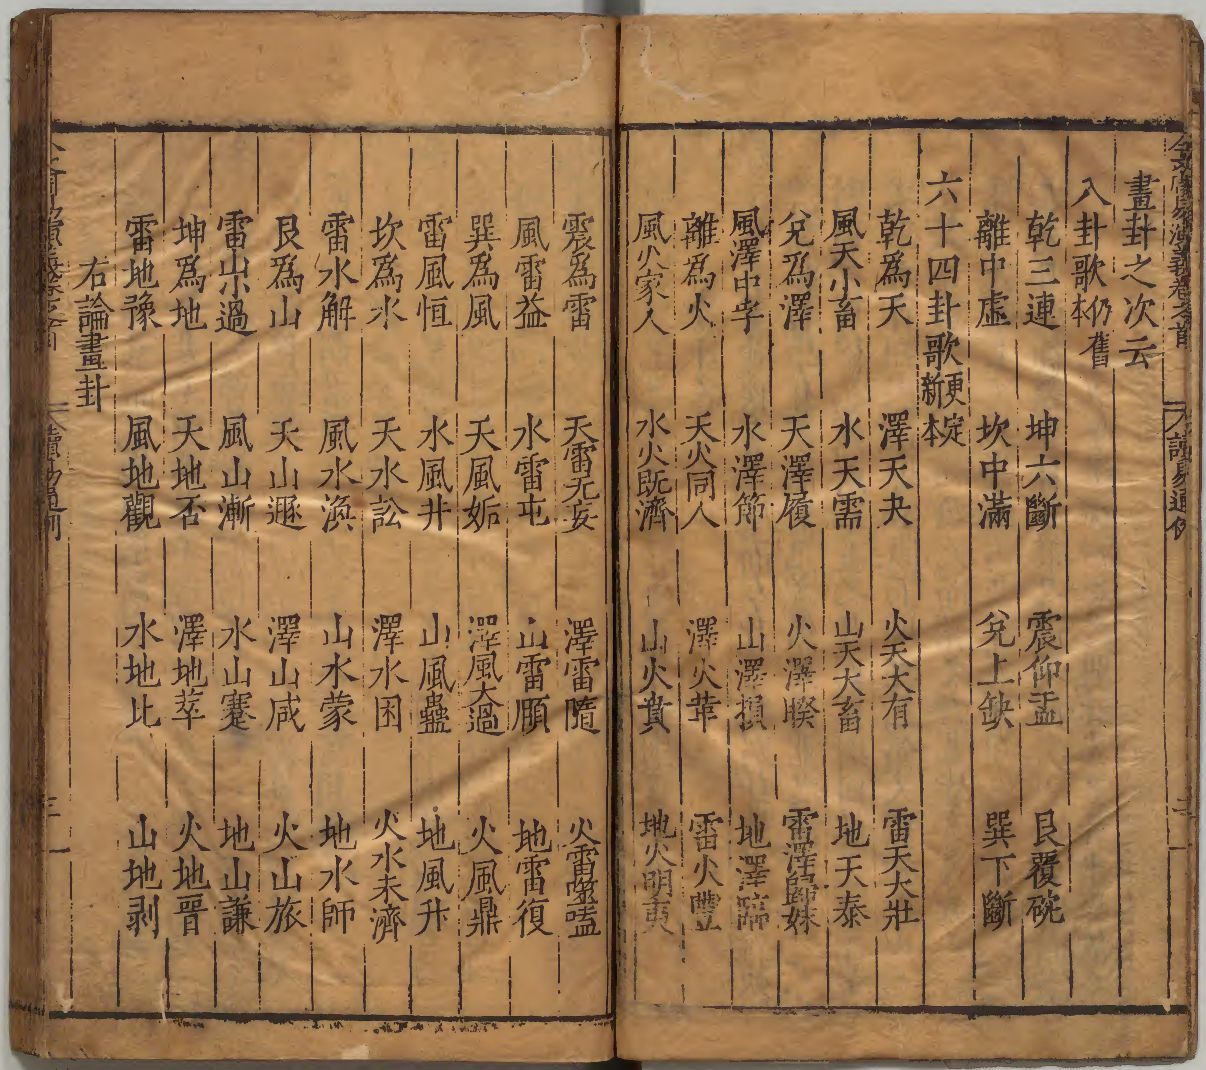 畫卦之次云
八卦歌仍舊本
乾三連　坤六斷　震仰盂　艮覆碗
離中虛　坎中滿　兌上缺　巽下斷
六十四卦歌更定新本
乾爲天　澤天夬　火天大有　雷天大壯
風天小畜　水天需　山天大畜　地天泰
兌爲澤　天澤履　火澤睽　雷澤歸妹
風澤中孚　水澤節　山澤損　地澤臨
離爲火　天火同人　澤火革　雷火豐
風火家人　水火既濟　山火賁　地火明夷
震爲雷　天雷无妄　澤雷隨　火雷噬嗑
風雷益　水雷屯　山雷頤　地雷復
巽爲風　天風姤　澤風大過　火風鼎
雷風恒　水風井　山風蠱　地風升
坎爲水　天水訟　澤水困　火水未濟
雷水解　風水渙　山水蒙　地水師
艮爲山　天山遯　澤山咸　火山旅
雷山小過　風山漸　水山蹇　地山謙
坤爲地　天地否　澤地萃　火地晉
雷地豫　風地觀　水地比　山地剥
右論畫卦